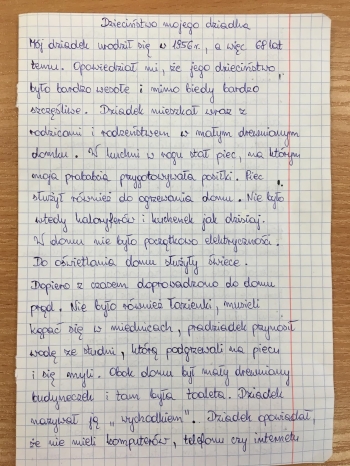 Dzieciństwo mojego dziadka
Mój dziadek urodził się w 1956 r., a więc 68 lat
temu. Opowiedział mi, że jego dzieciństwo
było bardzo wesołe i mimo biedy bardzo
szczęśliwe. Dziadek mieszkał wraz z
rodzicami i rodzeństwem w małym drewnianym
domku. W kuchni w rogu stał piec, na którym
moja prababcia przygotowywała posiłki. Piec
służył również do ogrzewania domu. Nie było
wtedy kaloryferów i kuchenek jak dzisiaj.
W domu nie było początkowo elektryczności.
Do oświetlania domu służyły świece.
Dopiero z czasem doprowadzono do domu
prąd. Nie było również łazienki, musieli
kąpać się w miednicach, pradziadek przynosił
wodę ze studni, którą podgrzewali na piecu
i się myli. Obok domu był mały drewniany
budyneczek i tam była toaleta. Dziadek
nazywał ją „wychodkiem". Dziadek opowiadał,
że nie mieli komputerów, telefonu czy internetu